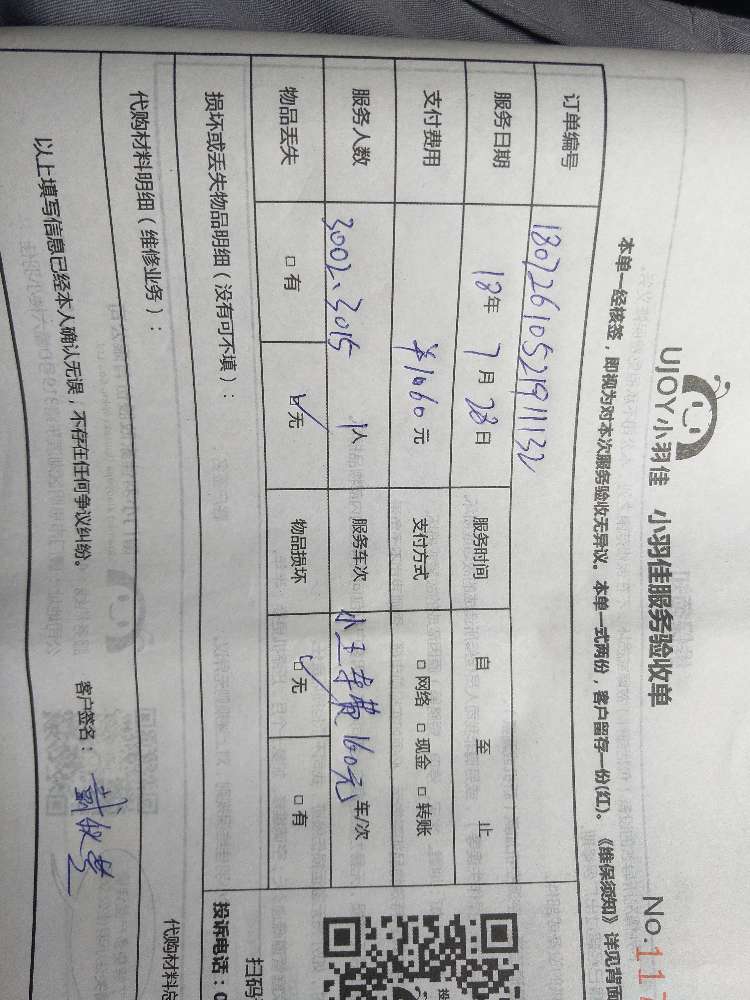 UJOY小羽佳 小羽佳服务验收单 No:117
本单一经核签，即视为对本次服务验收无异议。本单一式两份，客户留存一份(红)。《维保须知》详见背面
订单编号 18072610521911132
服务日期 18年 7月 28日 服务时间 自 至 止
支付费用 ¥1060元 支付方式 □网络 □现金 □转账
服务人数 3002、3015 1人 服务车次 小王车费160元 车/次
物品丢失 □有 ☑无 物品损坏 ☑无 □有
损坏或丢失物品明细（没有可不填）：
投诉电话：0
扫码
代购材料明细（维修业务）：
代购材料总
以上填写信息已经本人确认无误，不存在任何争议纠纷。 客户签名：